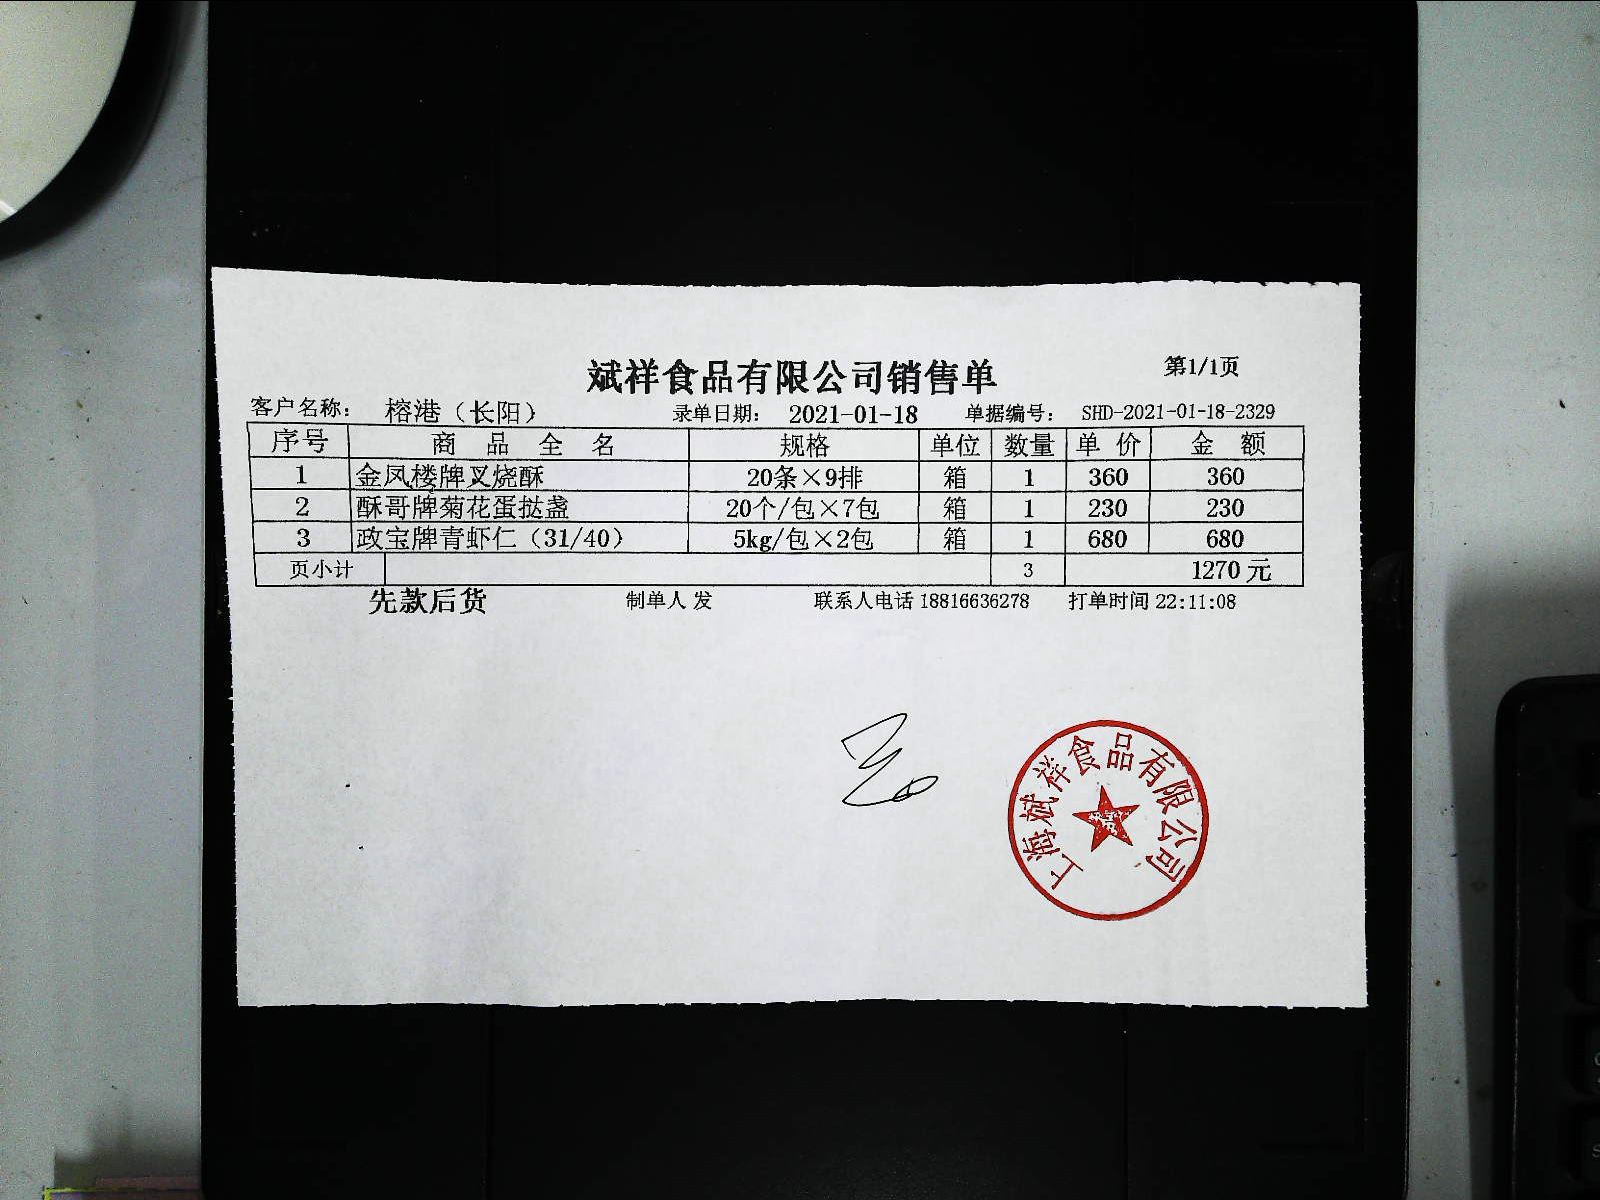 斌祥食品有限公司销售单 第1/1页
客户名称： 榕港（长阳） 录单日期： 2021-01-18 单据编号： SHD-2021-01-18-2329
序号 商品全名 规格 单位 数量 单价 金额
1 金凤楼牌叉烧酥 20条×9排 箱 1 360 360
2 酥哥牌菊花蛋挞盏 20个/包×7包 箱 1 230 230
3 政宝牌青虾仁（31/40） 5kg/包×2包 箱 1 680 680
页小计 3 1270 元
先款后货 制单人 发 联系人电话 18816636278 打单时间 22:11:08
上海斌祥食品有限公司